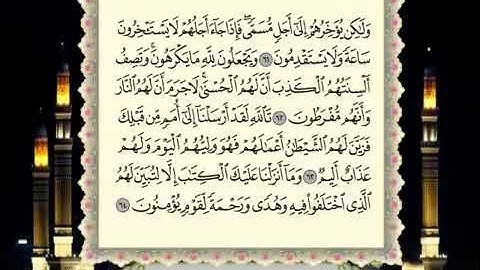 وَلَٰكِن يُؤَخِّرُهُمْ إِلَىٰٓ أَجَلٍ مُّسَمًّى ۖ فَإِذَا جَآءَ أَجَلُهُمْ لَا يَسْتَـْٔخِرُونَ
سَاعَةً وَلَا يَسْتَقْدِمُونَ ۝٦١ وَيَجْعَلُونَ لِلَّهِ مَا يَكْرَهُونَ ۚ وَتَصِفُ
أَلْسِنَتُهُمُ ٱلْكَذِبَ أَنَّ لَهُمُ ٱلْحُسْنَىٰ ۖ لَا جَرَمَ أَنَّ لَهُمُ ٱلنَّارَ
وَأَنَّهُم مُّفْرَطُونَ ۝٦٢ تَٱللَّهِ لَقَدْ أَرْسَلْنَآ إِلَىٰٓ أُمَمٍ مِّن قَبْلِكَ
فَزَيَّنَ لَهُمُ ٱلشَّيْطَٰنُ أَعْمَٰلَهُمْ فَهُوَ وَلِيُّهُمُ ٱلْيَوْمَ وَلَهُمْ
عَذَابٌ أَلِيمٌ ۝٦٣ وَمَآ أَنزَلْنَا عَلَيْكَ ٱلْكِتَٰبَ إِلَّا لِتُبَيِّنَ لَهُمُ
ٱلَّذِى ٱخْتَلَفُوا۟ فِيهِ ۙ وَهُدًى وَرَحْمَةً لِّقَوْمٍ يُؤْمِنُونَ ۝٦٤